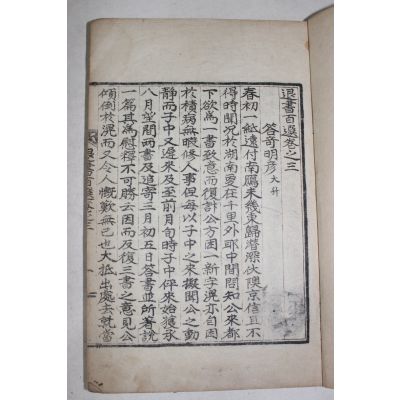 退書百選卷之三
答奇明彦 大升
春初一紙遠付南鴈未幾東歸潛深伏隩京信且不
得時聞況於湖南夐在千里外耶中間聞知公來都
下欲爲一書致意而復計公方困一新字滉亦自困
於積病無暇修人事但每以子中之來擬聞公之動
靜而子中又遲來及至前月旬時子中伻來始獲承
八月望間兩書及追寄三月初五日答書並所著說
一篇其爲慰釋不可勝云因而反復三書之意見公
傾倒於滉而又令人慨歎無已也大抵出處去就當
退書百選卷之三